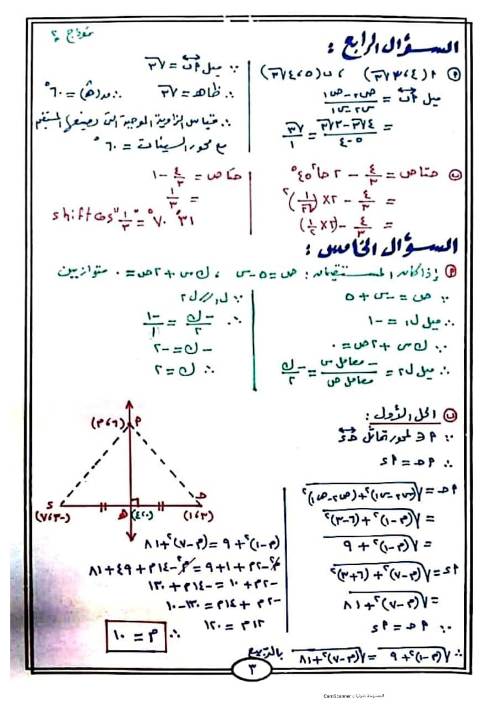 نموذج ٢
السؤال الرابع :
(٩) ٢ (٤ ، ٣√٣) ، ب (٥ ، ٤√٣)
ميل أب = (ص٢ - ص١) / (س٢ - س١)
= (٤√٣ - ٣√٣) / (٥ - ٤) = √٣ / ١
∵ ميل أب = √٣
∴ ظا هـ = √٣ ∴ ق(هـ) = ٦٠°
∴ قياس الزاوية الموجبة التى يصنعها المستقيم
مع محور السينات = ٦٠°
(ب) حتا ص = ٤/٣ - ٢ حا² ٤٥°
= ٤/٣ - ٢ × (١/√٢)²
= ٤/٣ - (٢ × ١/٢)
حتا ص = ٤/٣ - ١
= ١/٣
shift cos ١/٣ = ٧٠° ٣١
السؤال الخامس :
(٩) إذا كان المستقيمان : ص = ٥ - س ، ك س + ٢ ص = ٠ متوازيين
∵ ص = - س + ٥
∴ ميل ل١ = - ١
∵ ك س + ٢ ص = ٠
∴ ميل ل٢ = - معامل س / معامل ص = - ك / ٢
∵ ل١ // ل٢
∴ - ك / ٢ = - ١ / ١
- ك = - ٢
∴ ك = ٢
(ب) الحل الأول :
∵ ٩ ∈ لمحور تماثل حـ د
∴ ٩ حـ = ٩ د
٩ حـ = √((س٢ - س١)² + (ص٢ - ص١)²)
= √((٣ - ٦)² + (م - ١)²)
= √((م - ١)² + ٩)
٩ د = √((م - ٧)² + (٦ + ٣)²)
= √((م - ٧)² + ٨١)
∵ ٩ حـ = ٩ د
∴ √((م - ١)² + ٩) = √((م - ٧)² + ٨١) بالتربيع
٩ (٦ ، م)
د
(-٣ ، ٧)
(٠ ، ٤)
حـ
(٣ ، ١)
(م - ١)² + ٩ = (م - ٧)² + ٨١
م² - ٢م + ١ + ٩ = م² - ١٤م + ٤٩ + ٨١
- ٢م + ١٠ = - ١٤م + ١٣٠
- ٢م + ١٤م = ١٣٠ - ١٠
١٢م = ١٢٠
∴ م = ١٠
٣
CamScanner